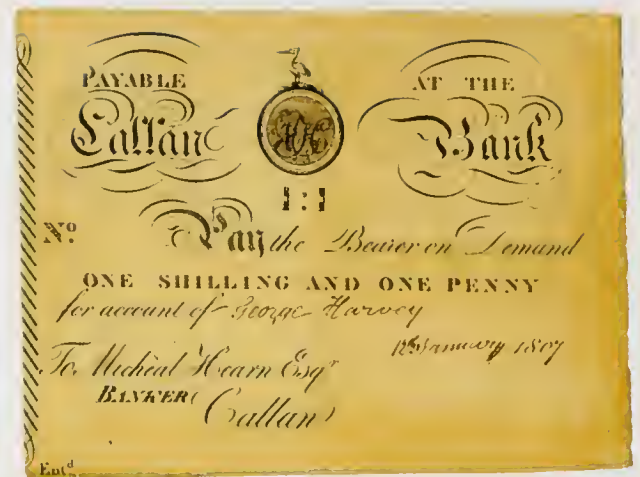 PAYABLE AT THE
Callan Bank
1:1
No. Pay the Bearer on Demand
ONE SHILLING AND ONE PENNY
for account of George Harvey
12th January 1807
To Micheal Hearn Esqr
BANKER Callan
Entd